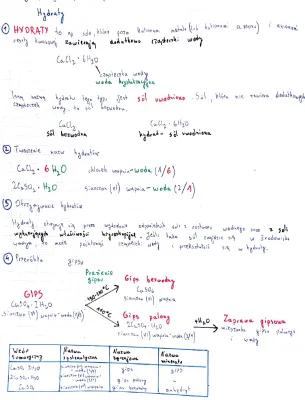 Hydraty
① HYDRATY to są sole, które poza kationami metalu (lub kationami amonu) i anionami
reszty kwasowej zawierają dodatkowo cząsteczki wody
CaCl₂ · 6H₂O
cząsteczka wody
woda hydratacyjna
Inną nazwą hydratu tego typu jest sól uwodniona. Sól, która nie zawiera dodatkowych
cząsteczek wody to sól bezwodna.
CaCl₂ CaCl₂ · 6H₂O
sól bezwodna hydrat - sól uwodniona
② Tworzenie nazw hydratów
CaCl₂ · 6H₂O chlorek wapnia - woda (1/6)
2CaSO₄ · H₂O siarczan (VI) wapnia - woda (2/1)
③ Otrzymywanie hydratów
Hydraty otrzymuje się przez wydzielanie odpowiednich soli z roztworu wodnego
wykazujących właściwości Jeśli taka sól znajduje się w środowisku
wodnym, to może cząsteczki wody i przekształcić się w hydraty.
④ Przeróbka gipsu
Prażenie
gipsu
Gips bezwodny
CaSO₄
siarczan (VI) wapnia
GIPS
CaSO₄ · 2H₂O
siarczan (VI) wapnia - woda (1/2)
Gips palony
2CaSO₄ · H₂O
siarczan (VI) wapnia - woda (2/1)
+H₂O
Zaprawa gipsowa
mieszanina gipsu palonego
i wody
Wzór sumaryczny Nazwa systematyczna Nazwa zwyczajowa Nazwa minerału
CaSO₄ · 2H₂O siarczan (VI) wapnia - woda (1/2) gips gips
2CaSO₄ · H₂O siarczan (VI) wapnia - woda (2/1) gips palony -
CaSO₄ siarczan (VI) wapnia gips bezwodny anhydryt